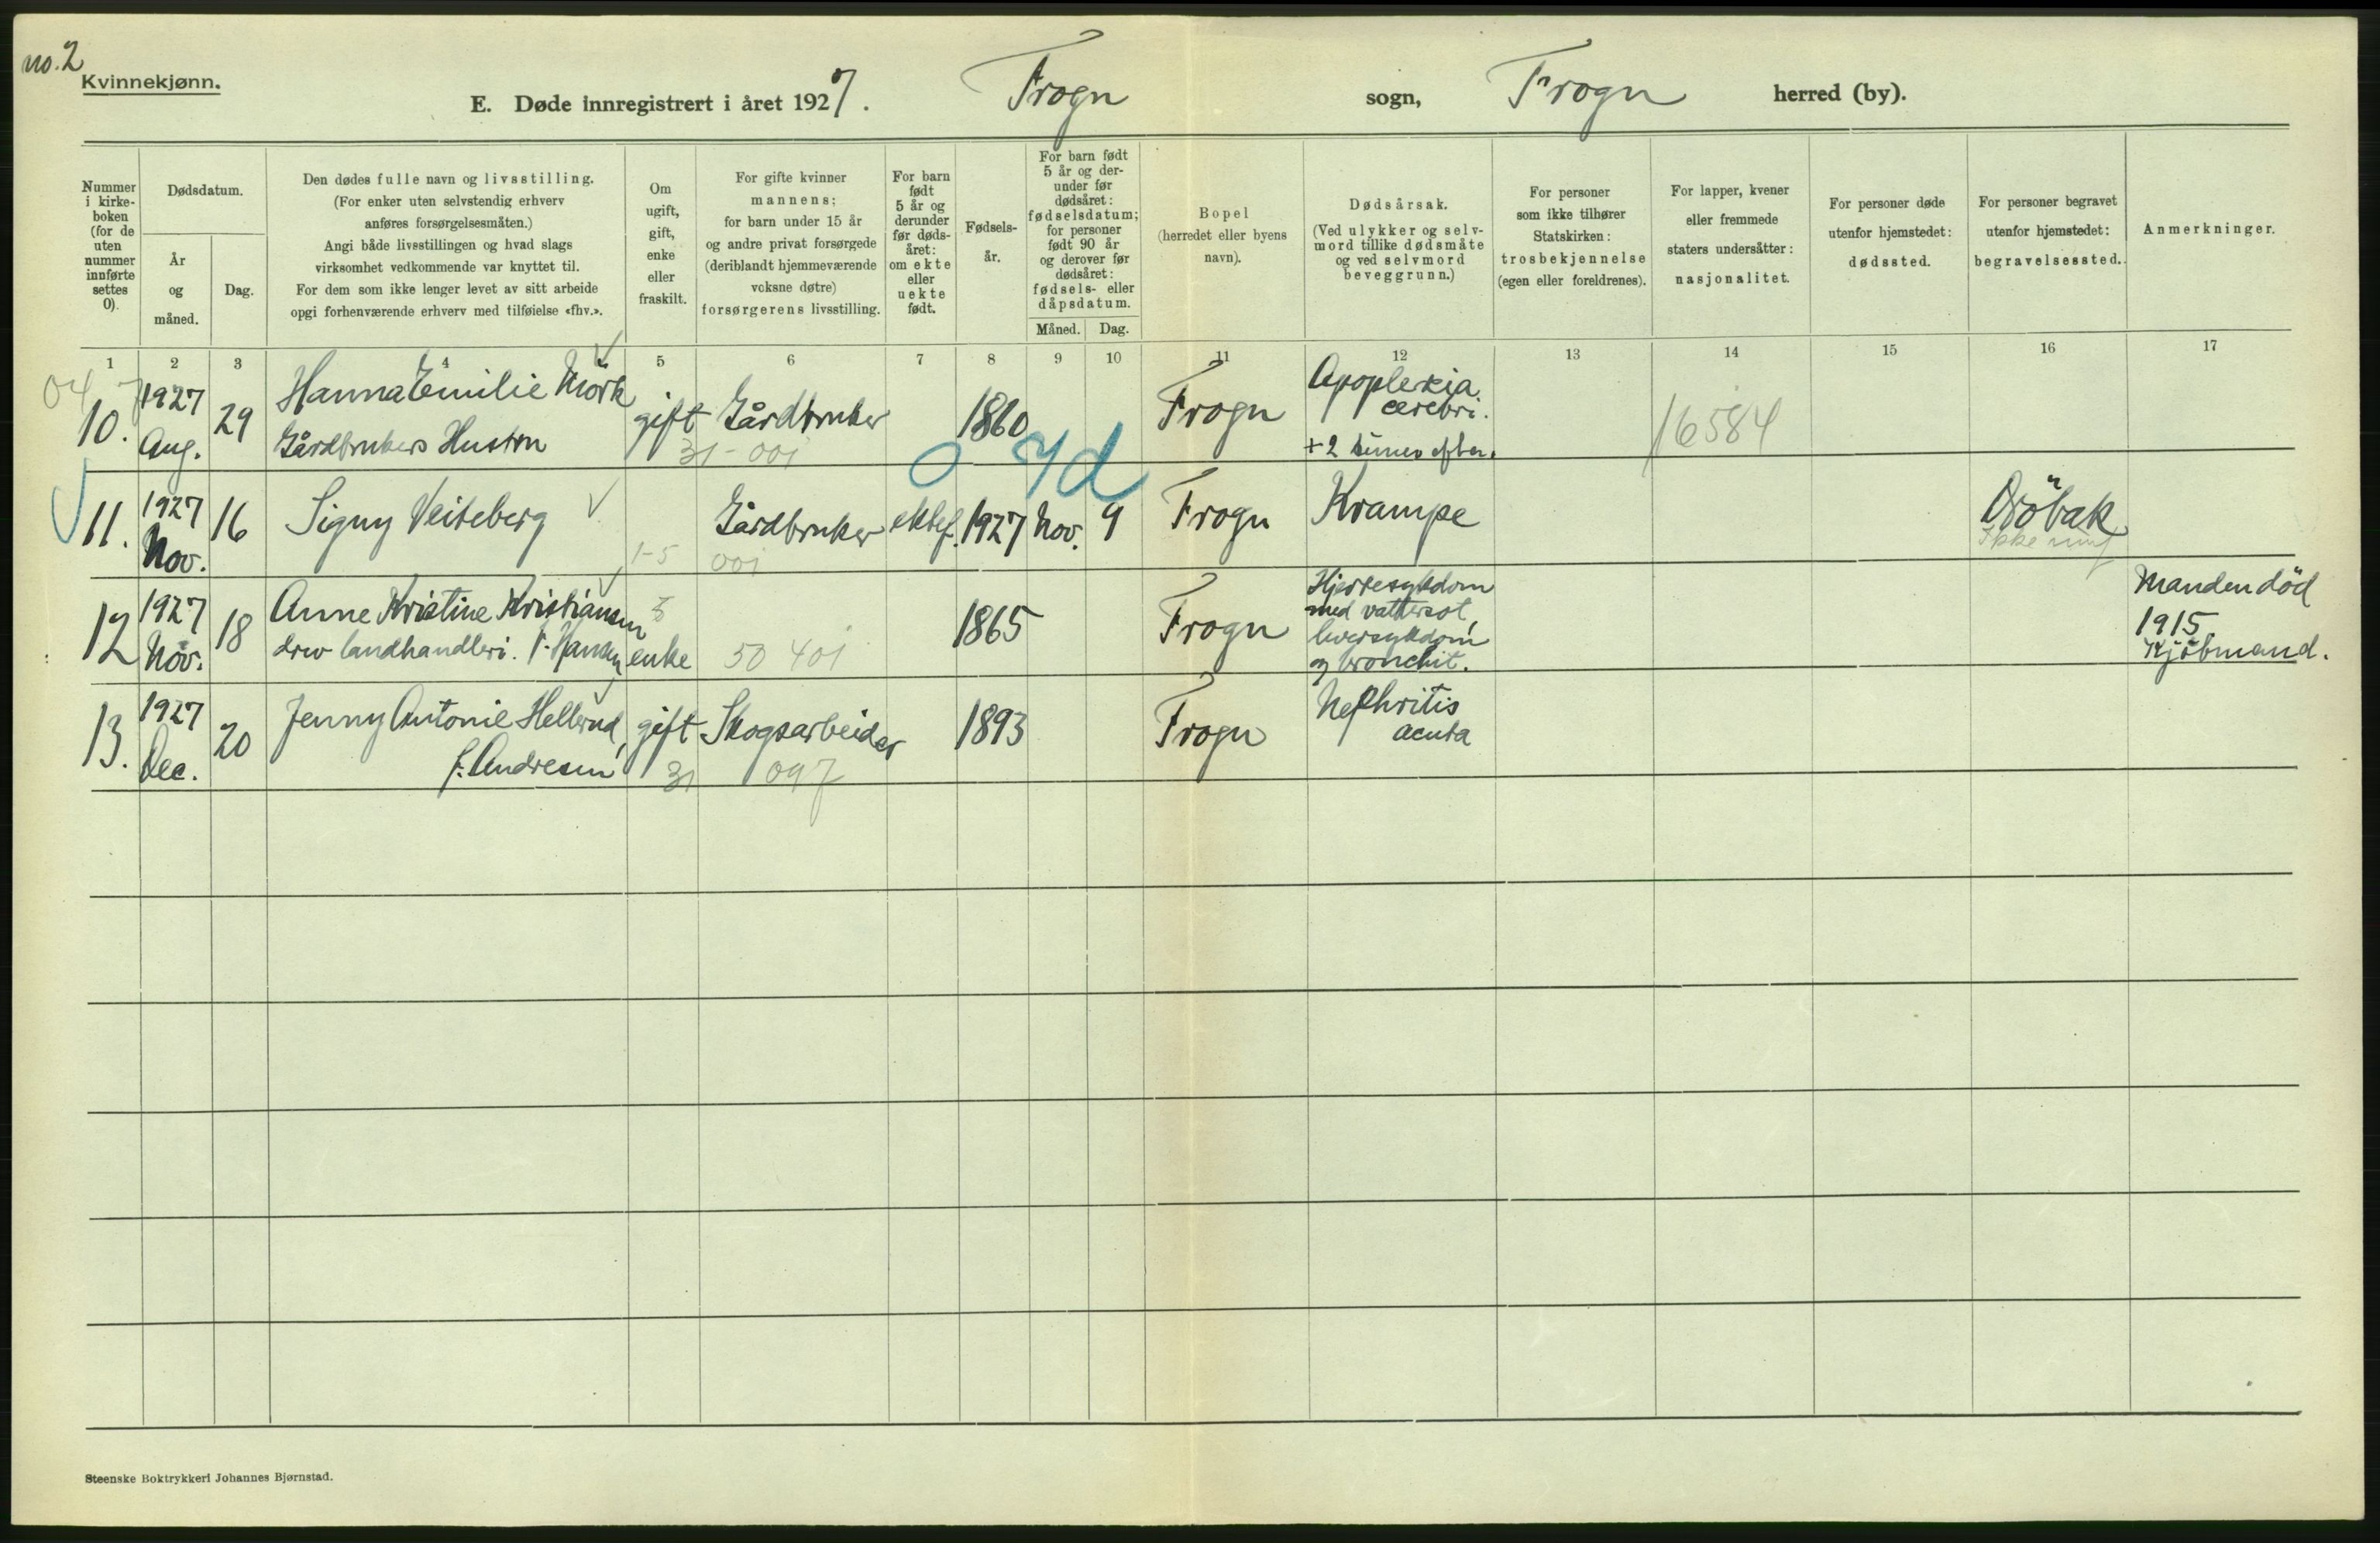 no. 2
Kvinnekjønn.
E. Døde innregistrert i året 1927. Frogn sogn, Frogn herred (by).
Nummer
i kirke-
boken
(for de
uten
nummer
innførte
settes
0).
Dødsdatum.
År
og
måned.
Dag.
Den dødes fulle navn og livsstilling.
(For enker uten selvstendig erhverv
anføres forsørgelsesmåten.)
Angi både livsstillingen og hvad slags
virksomhet vedkommende var knyttet til.
For dem som ikke lenger levet av sitt arbeide
opgi forhenværende erhverv med tilføielse «fhv.».
Om
ugift,
gift,
enke
eller
fraskilt.
For gifte kvinner
mannens;
for barn under 15 år
og andre privat forsørgede
(deriblandt hjemmeværende
voksne døtre)
forsørgerens livsstilling.
For barn
født
5 år og
derunder
før døds-
året:
om ekte
eller
uekte
født.
Fødsels-
år.
For barn født
5 år og der-
under før
dødsåret:
fødselsdatum;
for personer
født 90 år
og derover før
dødsåret:
fødsels- eller
dåpsdatum.
Måned. Dag.
Bopel
(herredet eller byens
navn).
Dødsårsak.
(Ved ulykker og selv-
mord tillike dødsmåte
og ved selvmord
beveggrunn.)
For personer
som ikke tilhører
Statskirken:
trosbekjennelse
(egen eller foreldrenes).
For lapper, kvener
eller fremmede
staters undersåtter:
nasjonalitet.
For personer døde
utenfor hjemstedet:
dødssted.
For personer begravet
utenfor hjemstedet:
begravelsessted.
Anmerkninger.
1 2 3 4 5 6 7 8 9 10 11 12 13 14 15 16 17
04 7
10. 1927 Aug. 29 Hanna Emilie Mörk gift Gårdbruker 1860 Frogn Apoplexia
cerebri.
Gårdbrukers Hustru 31-001 + 2 timer efter. 16584
0 7d
11. 1927 Nov. 16 Signy Veiteberg Gårdbruker ektef. 1927 Nov. 9 Frogn Krampe Dröbak
1-5 001 Ikke
12 1927 Nov. 18 Anne Kristine Kristiansen 1865 Frogn Hjertesykdom
med vattersot,
leversykdom
og bronchit.
drev landhandleri. f. Hansen enke 50 401
Manden död
1915
Kjöbmand.
13. 1927 Dec. 20 Jenny Antonie Hellerud, gift Skogsarbeider 1893 Frogn Nephritis
acuta
f. Andresen 31 097
Steenske Boktrykkeri Johannes Bjørnstad.